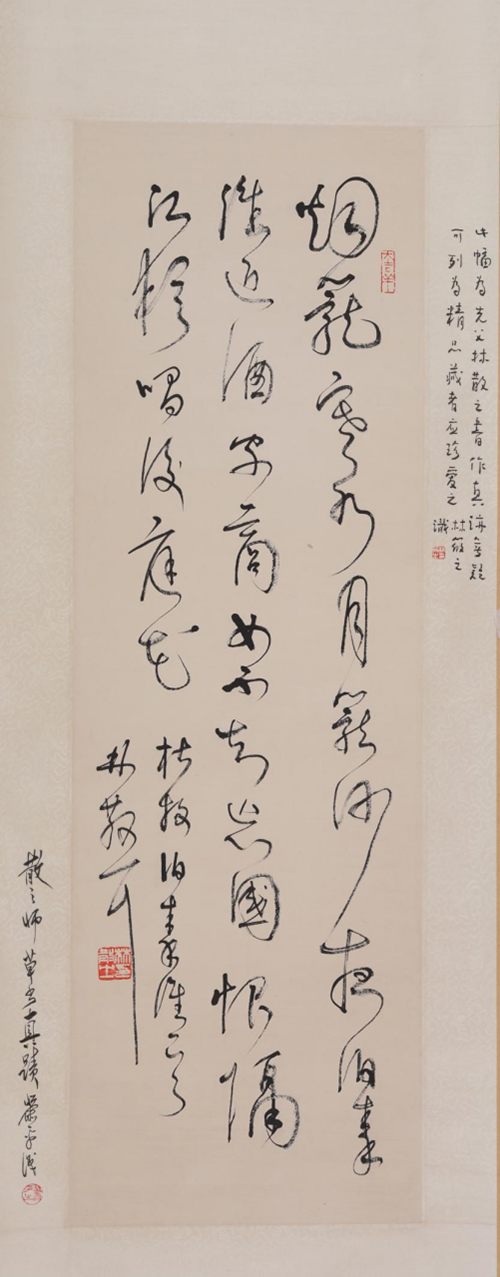 此幅为先父林散之書作真迹無疑
可列为精品藏者应珍爱之 林筱之
識
烟籠寒水月籠沙夜泊秦
淮近酒家商女不知亡國恨隔
江犹唱後庭花
杜牧泊秦淮
林散耳
散之師草書真蹟